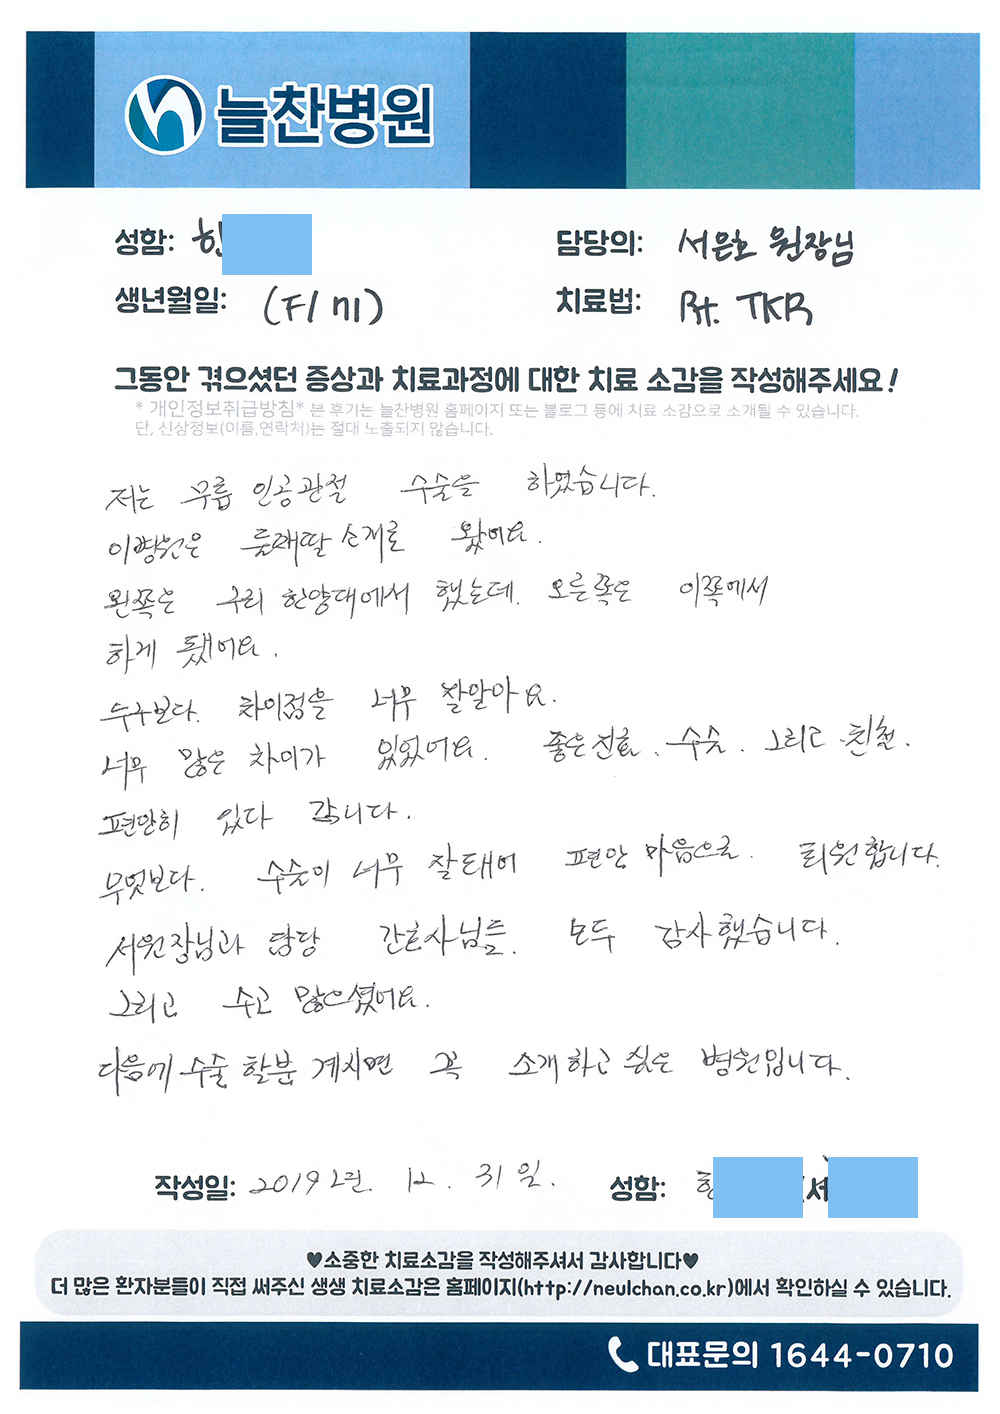 늘찬병원
성함: 한
담당의: 서은호 원장님
생년월일: (F/ 71)
치료법: Rt. TKR
그동안 겪으셨던 증상과 치료과정에 대한 치료 소감을 작성해주세요!
* 개인정보취급방침* 본 후기는 늘찬병원 홈페이지 또는 블로그 등에 치료 소감으로 소개될 수 있습니다.
단, 신상정보(이름,연락처)는 절대 노출되지 않습니다.
저는 무릎 인공관절 수술을 하였습니다.
이병원은 둘째딸 소개로 왔어요.
왼쪽은 구리 한양대에서 했는데. 오른쪽은 이쪽에서
하게 됐어요.
누구보다. 차이점을 너무 잘알아요.
너무 많은 차이가 있었어요. 좋은진료. 수술. 그리고 친절.
편안히 있다 갑니다.
무엇보다. 수술이 너무 잘돼어 편안 마음으로. 퇴원합니다.
서원장님과 담당 간호사님들. 모두 감사했습니다.
그리고 수고 많으셨어요.
다음에 수술 할분 계시면 꼭 소개하고 싶은 병원입니다.
작성일: 2019년. 12. 31일.
성함: 한 (서
♥소중한 치료소감을 작성해주셔서 감사합니다♥
더 많은 환자분들이 직접 써주신 생생 치료소감은 홈페이지(http://neulchan.co.kr)에서 확인하실 수 있습니다.
대표문의 1644-0710